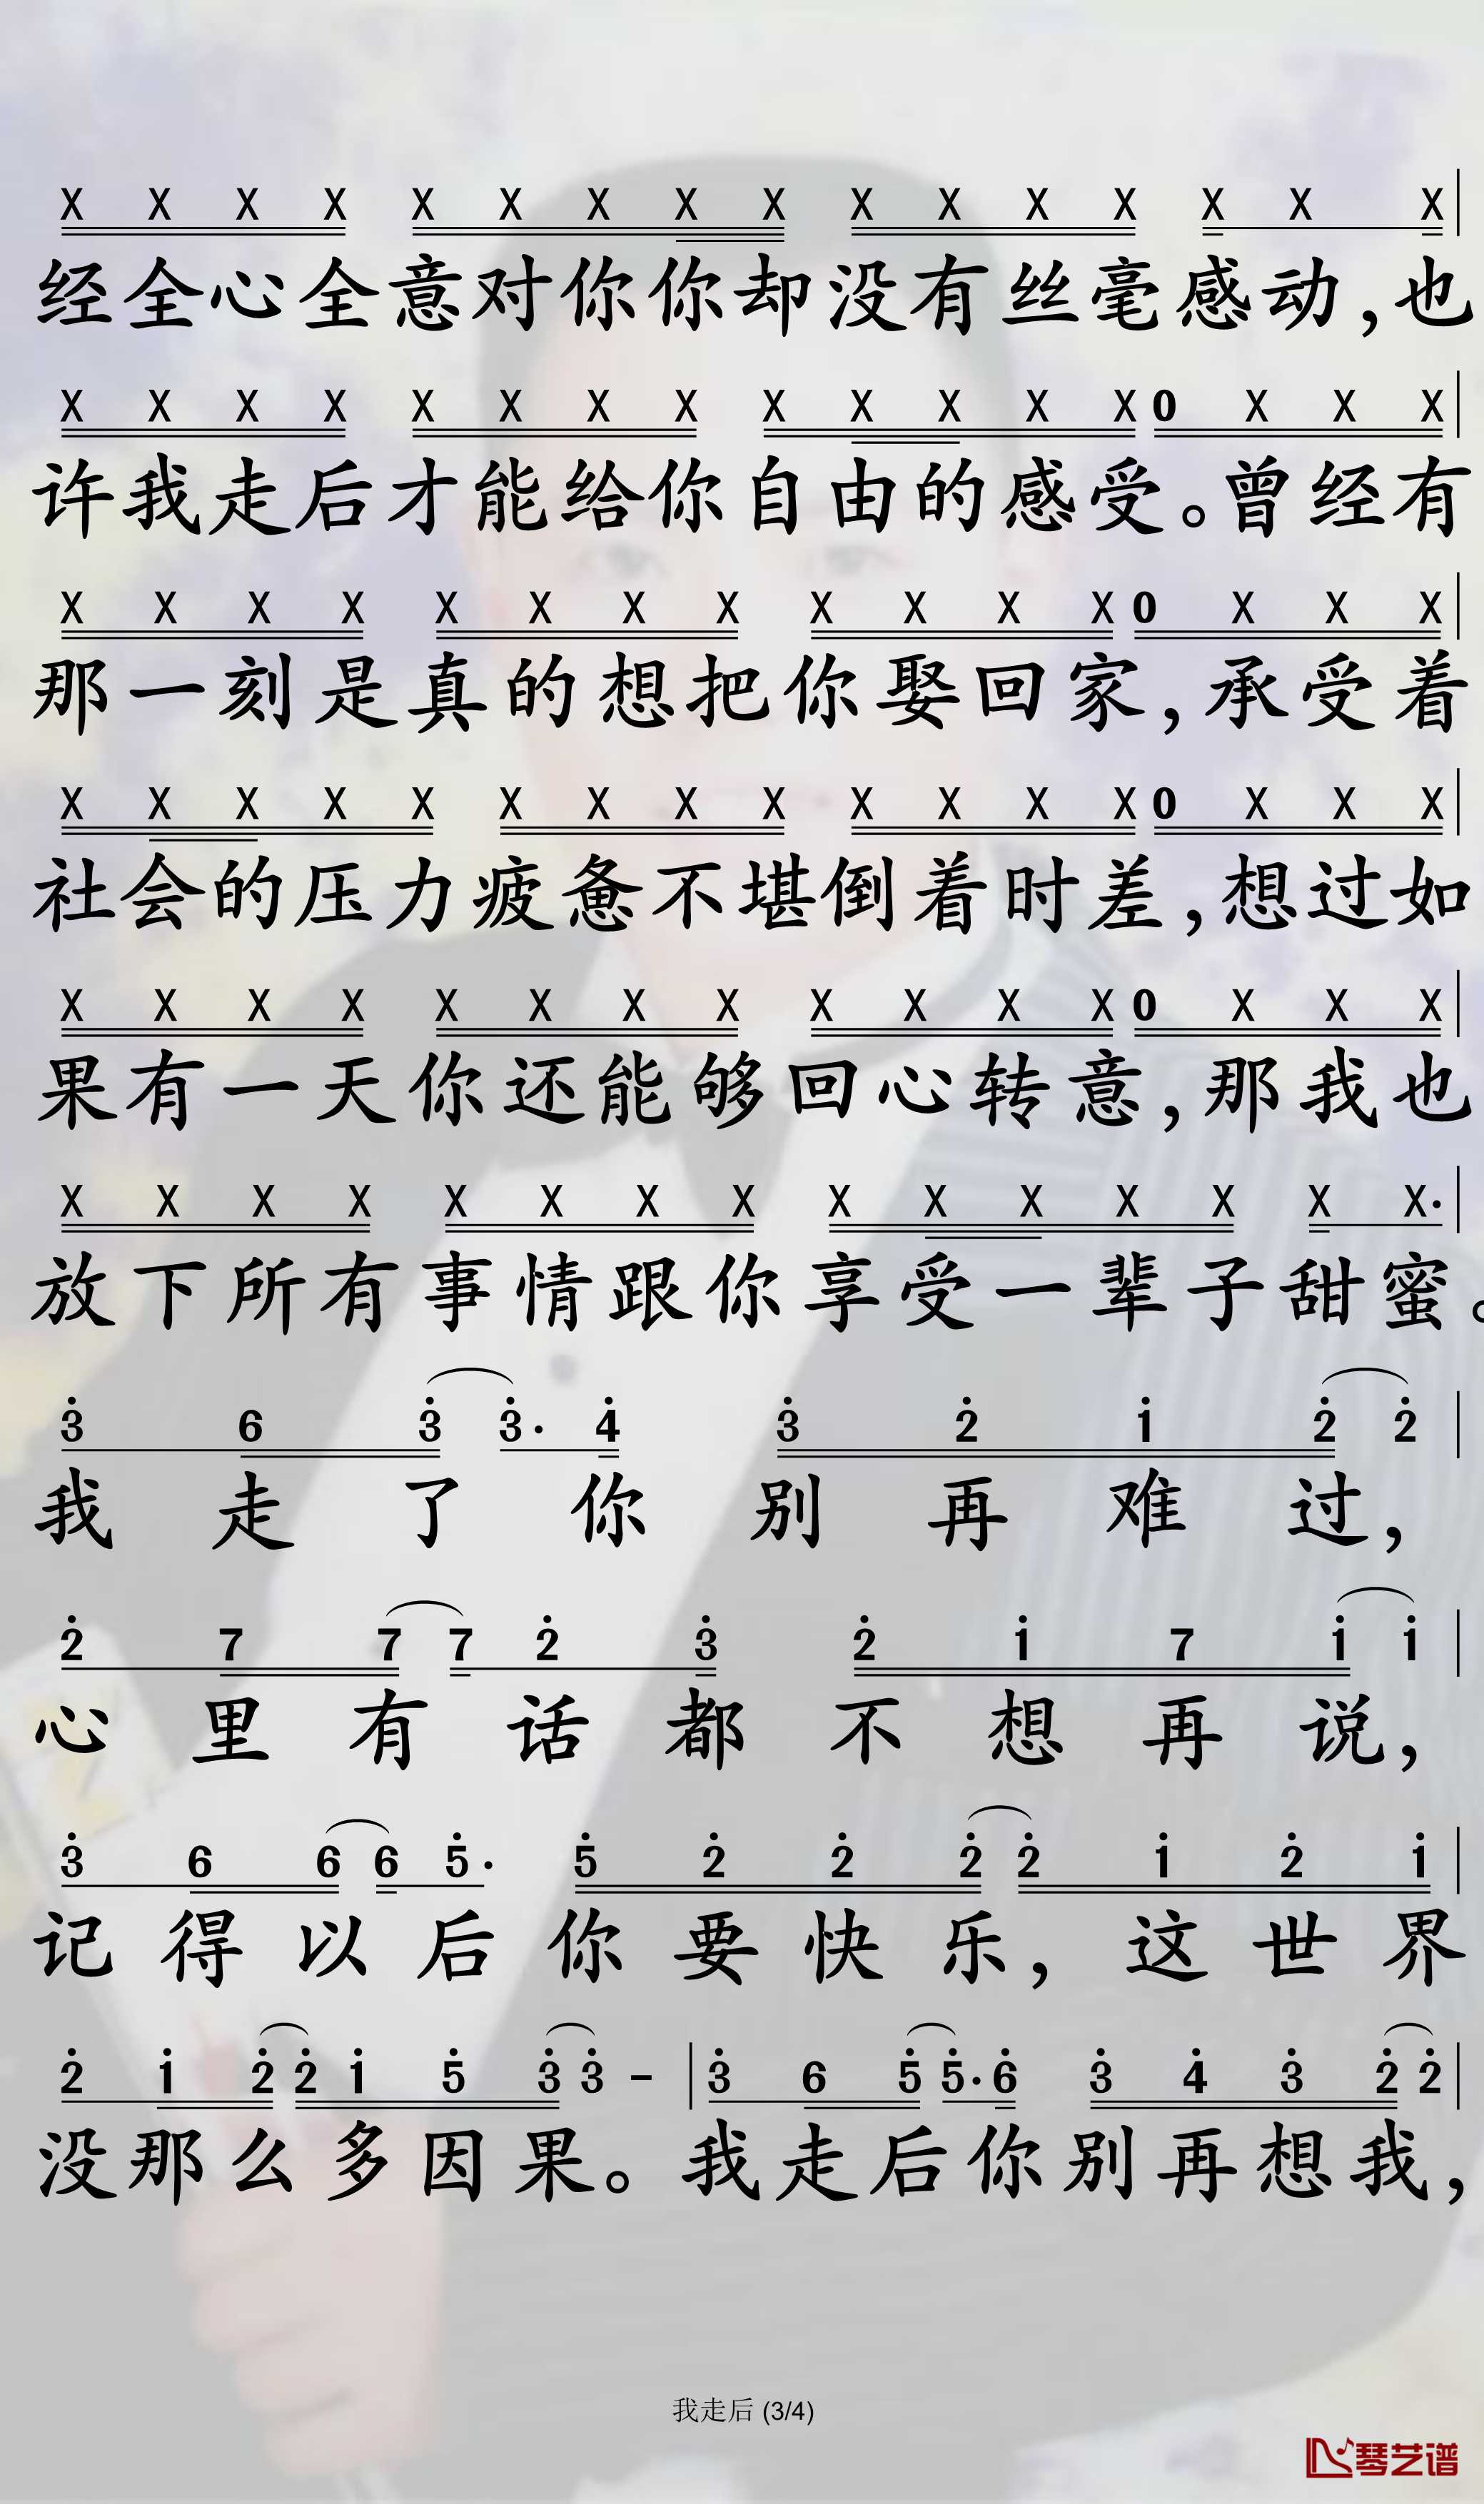 X X X X X X X X X X X X X X X X
经全心全意对你你却没有丝毫感动,也
X X X X X X X X X X X X X 0 X X X
许我走后才能给你自由的感受。曾经有
X X X X X X X X X X X X 0 X X X
那一刻是真的想把你娶回家,承受着
X X X X X X X X X X X X X 0 X X X
社会的压力疲惫不堪倒着时差,想过如
X X X X X X X X X X X X 0 X X X
果有一天你还能够回心转意,那我也
X X X X X X X X X X X X X X X·
放下所有事情跟你享受一辈子甜蜜。
3 6 3 3· 4 3 2 1 2 2
我走了你别再难过,
2 7 7 7 2 3 2 1 7 1 1
心里有话都不想再说,
3 6 6 6 5· 5 2 2 2 2 1 2 1
记得以后你要快乐,这世界
2 1 2 2 1 5 3 3 - 3 6 5 5· 6 3 4 3 2 2
没那么多因果。我走后你别再想我,
我走后 (3/4)
琴艺谱